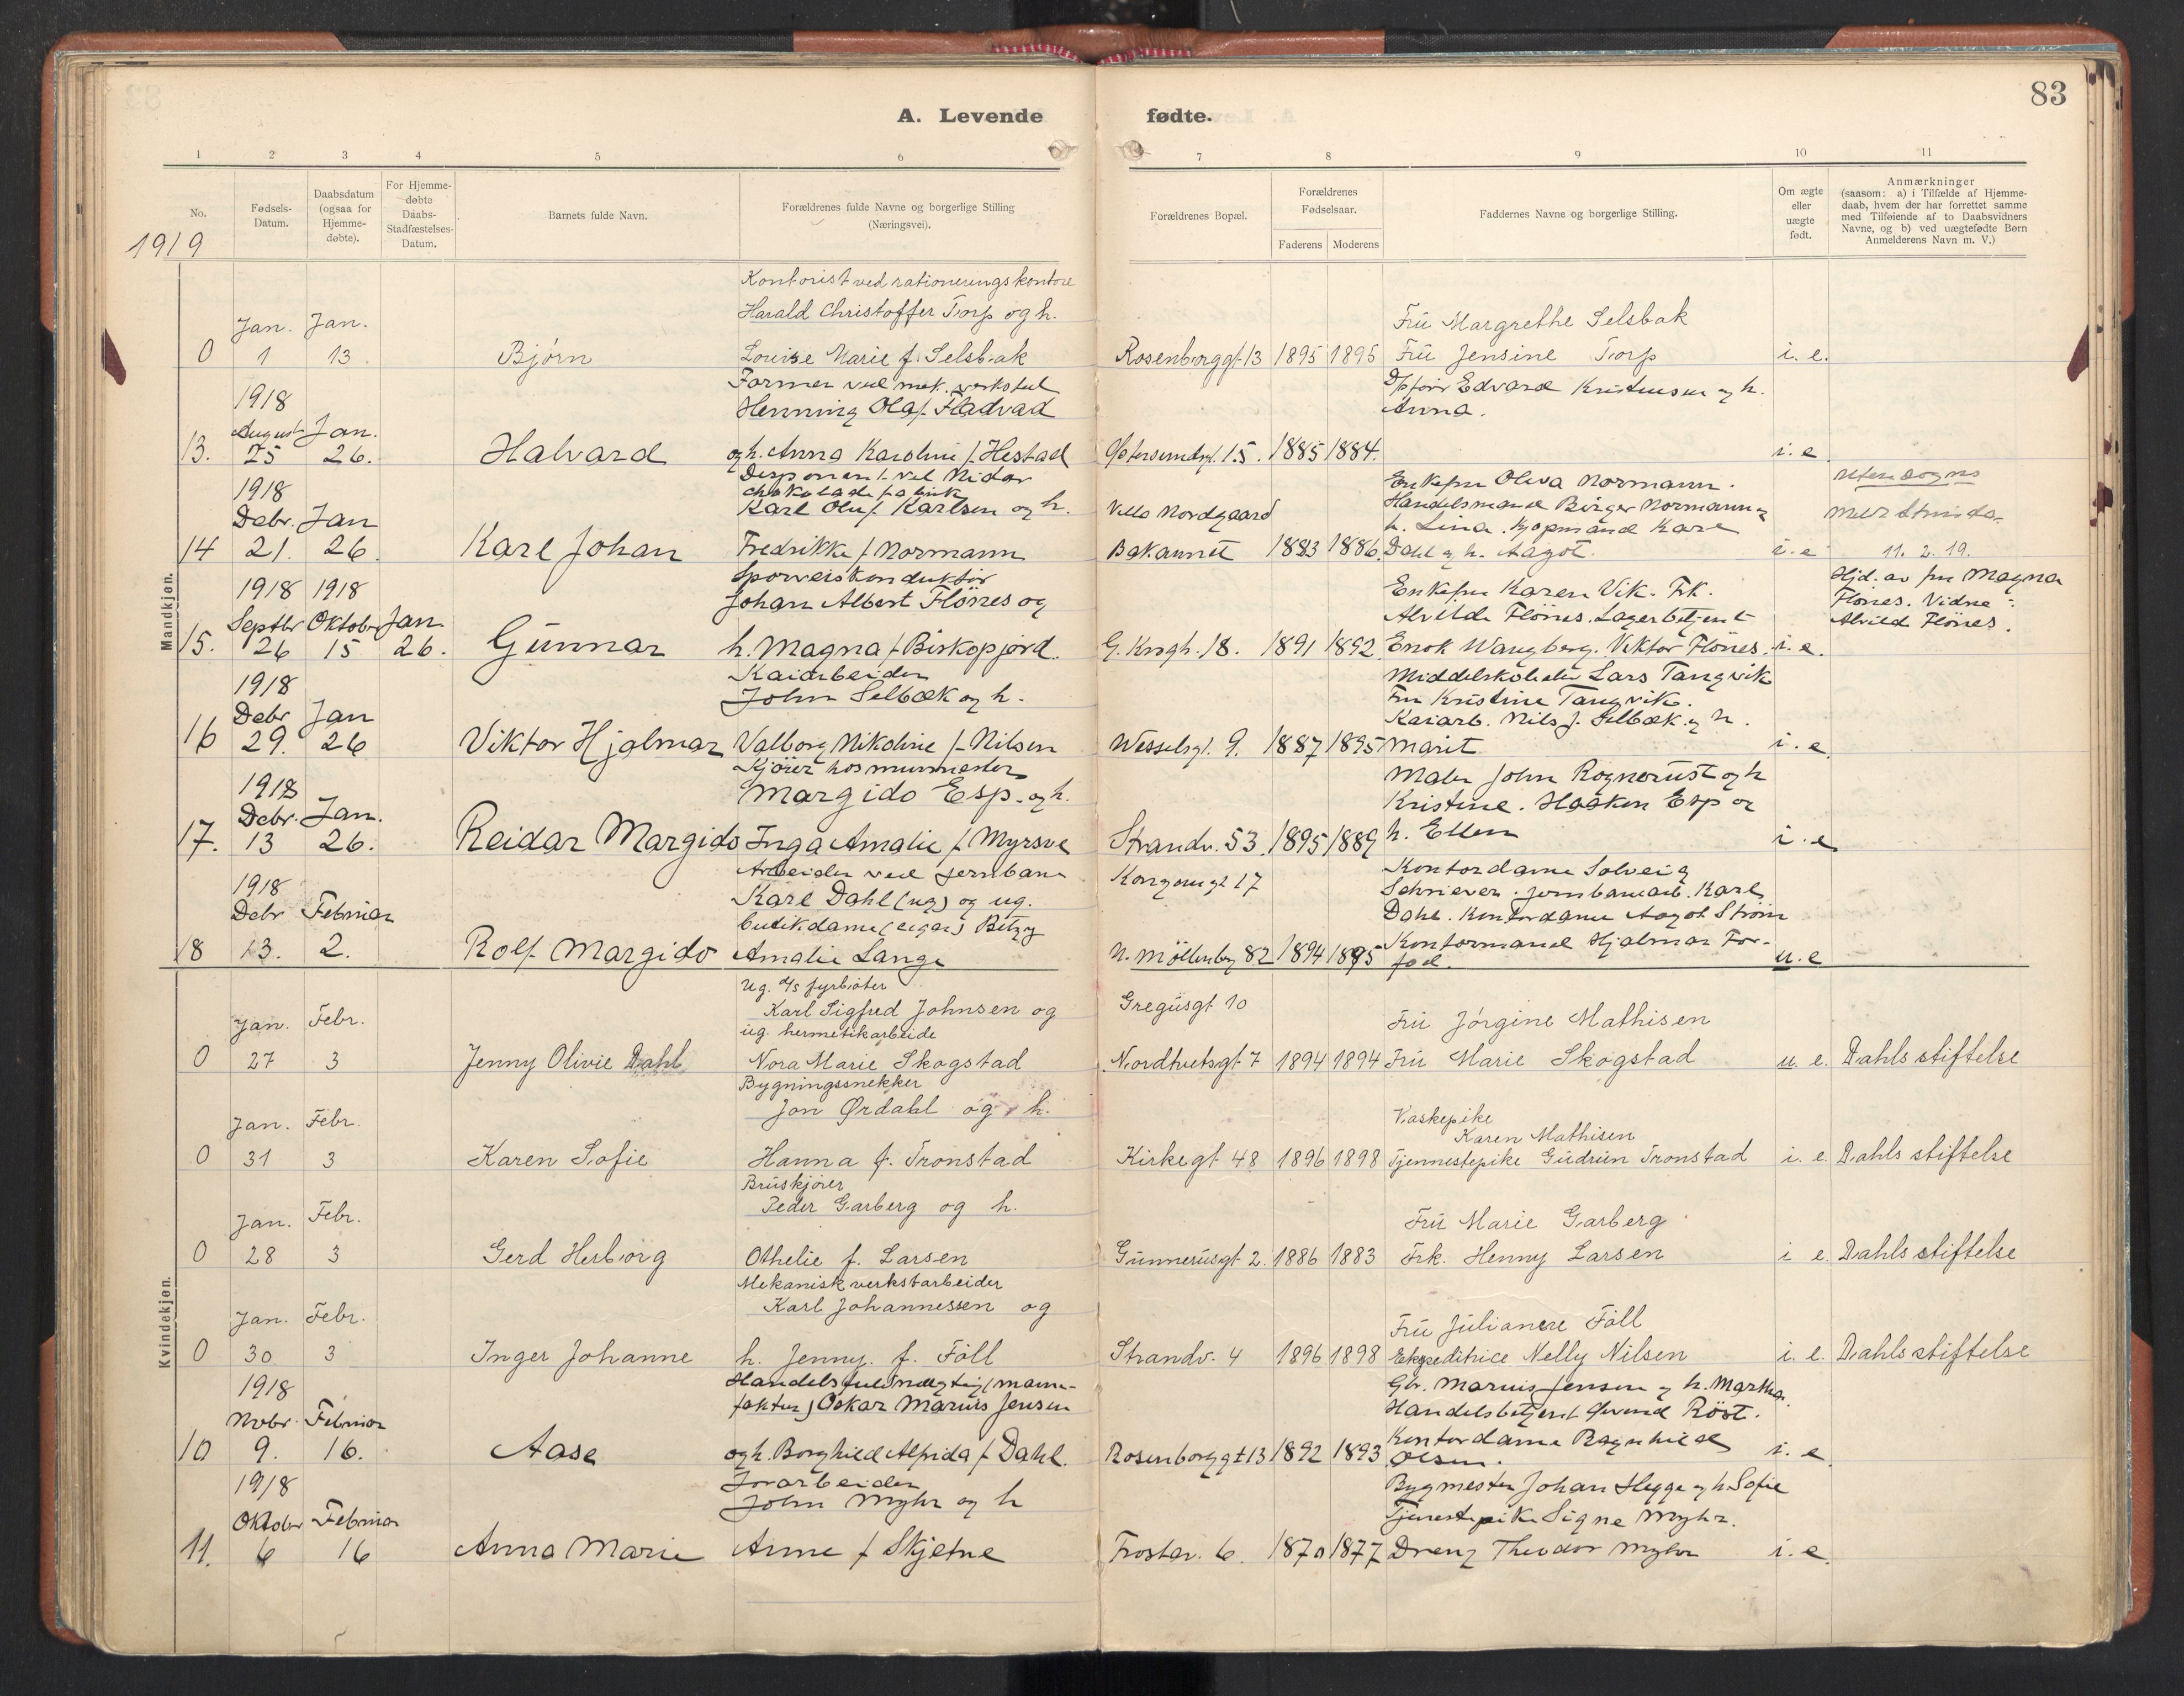 83
A. Levende fødte.
1 2 3 4 5 6 7 8 9 10 11
No.
Fødsels-Datum.
Daabsdatum (ogsaa for Hjemme-døbte).
For Hjemme-døbte Daabs-Stadfæstelses-Datum.
Barnets fulde Navn.
Forældrenes fulde Navne og borgerlige Stilling (Næringsvei).
Forældrenes Bopæl.
Forældrenes Fødselsaar.
Faderens Moderens
Faddernes Navne og borgerlige Stilling.
Om ægte eller uægte født.
Anmærkninger
(saasom: a) i Tilfælde af Hjemme-
daab, hvem der har forrettet samme
med Tilføiende af to Daabsvidners
Navne, og b) ved uægtefødte Børn
Anmelderens Navn m. V.)
1919
Mandkjøn.
Kontorist ved rationeringskontore
Jan. Jan. Harald Christoffer Torp og h. Frü Margrethe Selsbak
0 1 13. Bjørn Louise Marie f. Selsbak Rosenborggt 13 1895 1895 Frü Jensine Torp i. e.
Former ved mek. verksted
1918 Henning Olaf Fladvad Edvard Kristensen og h. Anna.
August Jan.
13. 25 26. Halvard og h. Anna Karoline f. Hestad 15. 1885 1884. i. e
Disponent ved Nidar
1918 chokoladefabrik Enkefru Oliva Normann. utensogns
Debr. Jan Karl Oluf Karlsen og h. Villa Nordgaard Handelsmand Birger Normann og
h. Lina. Kjøpmand Kare
14 21. 26. Karl Johan Fredrikke f Normann Bakaunet 1883 1886. Dahl og h. Aagot. i. e 11. 2. 19.
Sporveiskonduktör
1918 1918 Johan Albert Flönes og Enkefru Karen Vik. Frk. Hjd. av fru Magna
Septbr Oktobr Jan Alvilde Flönes. Lagerbetjent Flönes. Vidne:
Alvild Flönes.
15. 26 15 26. Günnar h. Magna f Biskopjord. G. Krogh. 18. 1891 1892 Enok Wangberg. Viktor Flönes. i. e.
Kaiarbeider
1918 John Selbæk og h. Middelskolelev Lars Tangvik
Debr Jan Fru Kristine Tangvik.
Kaiarb. Nils J. Selbæk og h.
16 29. 26 Viktor Hjalmar Valborg Nikoline f. Nilsen Wesselsgt. 9. 1887 1895 Marit i. e
Kjörer hos murmester
1918 Margido Esp. og h. Maler John Rognerust og h
Debr. Jan. Kristine. Haakon Esp og
17. 13 26. Reidar Margido Inga Amalie f Myrsve Strandv. 53. 1895 1889 h. Ellen i. e
Arbeider ved jernbane
1918 Karl Dahl (ug) og ug. Kongensgt 17 Kontordame Solveig
Debr Februar Schriever. jernbanearb. Karl
Butikdame (cigar) Betzy Dahl. Kontordame Aagot Ström
18 13. 2. Rolf Margido Amalie Lange N. Möllenbg 82 1894 1895 Kontormand Hjalmar For- u. e
Kvindekjøn.
Ug. d/s fyrbøter
Jan. Febr. Karl Sigfred Johnsen og Gregüsgt 10 Frü Jørgine Mathisen
ug. hermetikarbeide
0 27 3 Jenny Olivie Dahl Nora Marie Skogstad Nordtvetsgt 7 1894 1894 Frü Marie Skogstad u. e. Dahls stiftelse
Bygningssnekker
Jan. Febr. Jon Ørdahl og h. Vaskepike
Karen Mathisen
0 31 3 Karen Sofie Hanna f. Tronstad Kirkegt 48 1896 1898 Tjennestepike Güdrün Tronstad i. e. Dahls stiftelse
Brüskjører
Jan. Febr. Peder Garberg og h. Frü Marie Garberg
0 28 3 Gerd Herborg Othelie f. Larsen Günnerüsgt 2. 1886 1883 Frk. Henny Larsen i e. Dahls stiftelse
Mekanisk verkstarbeider
Jan. Febr. Karl Johannessen og Frü Jülianere Föll
0 30 3 Inger Johanne h. Jenny. f. Föll Strandv. 4 1896 1898 Ekspeditrice Nelly Nilsen i. e. Dahls stiftelse
1918 Handelsfuldmægtig (manu- Marius Jensen og h. Martha.
Novbr. Februar faktur) Oskar Marius Jensen Handelsbetjent Röst.
10 9. 16. Aase og h. Borghild Alfrida f Dahl. Rosenborggt 13 1892 1893 Kontordame Ragnhild Olsen. i. e
1918 Jordarbeider Bygmester Johan Hegge og h. Sofie
Oktobr Februar John Myhr og h Tjenestepike Signe Myhr.
11. 6 16 Anna Marie Anne f Skjetne Frostav. 6. 1870 1877 Dreng Theodor Myhr i. e.